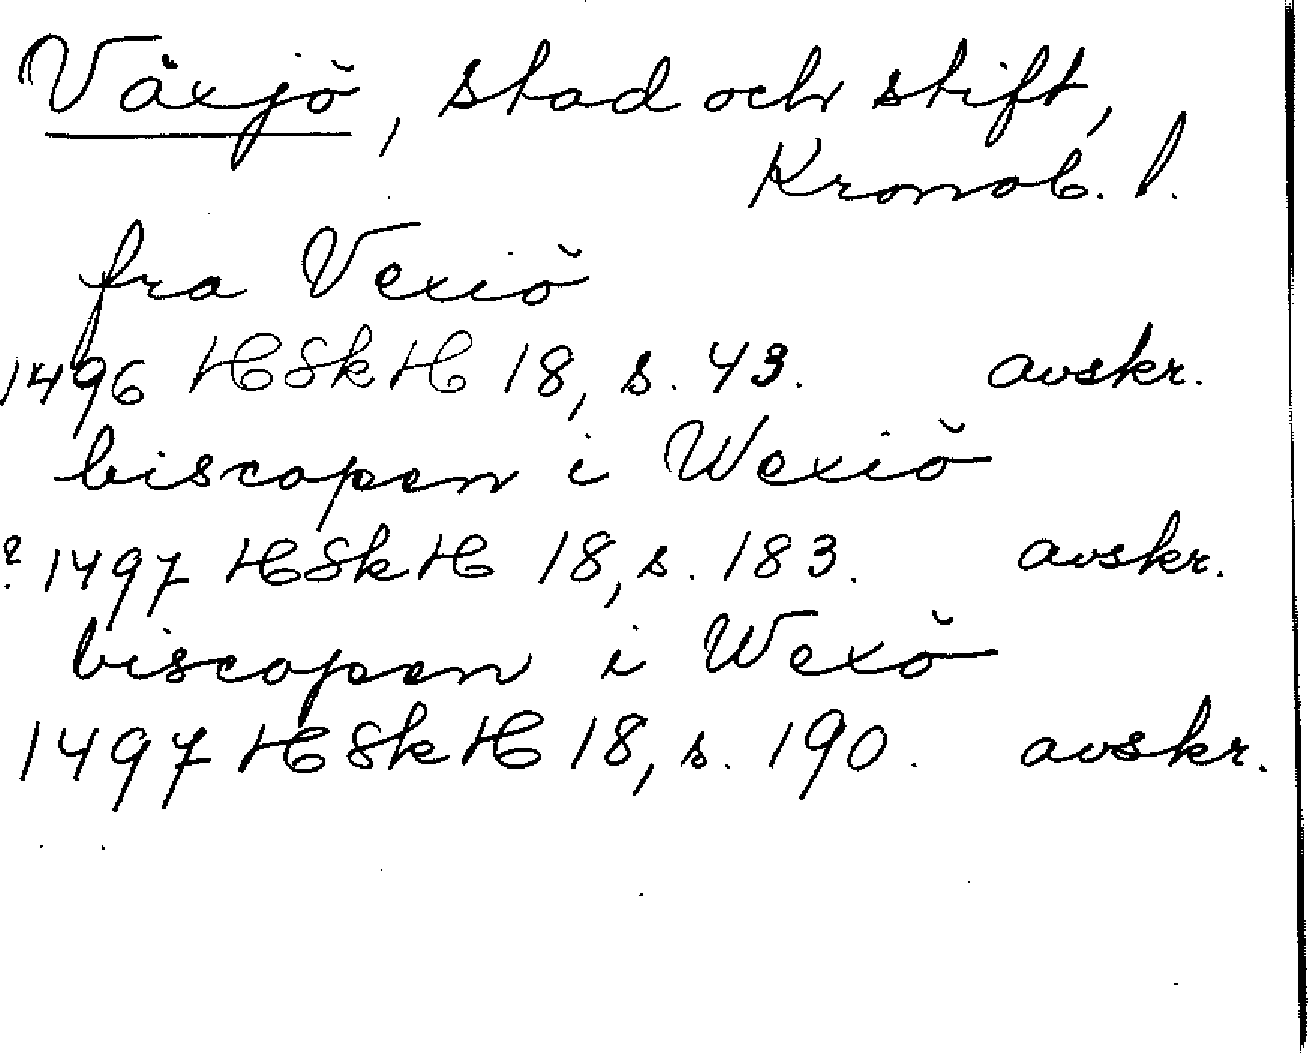 Växjö, stad och stift,
Kronob. l.
fra Vexiö
1496 HSkH 18, s. 43. avskr.
biscopen i Wexiö
? 1497 HSkH 18, s. 183. avskr.
biscopen i Wexö
1497 HSkH 18, s. 190. avskr.